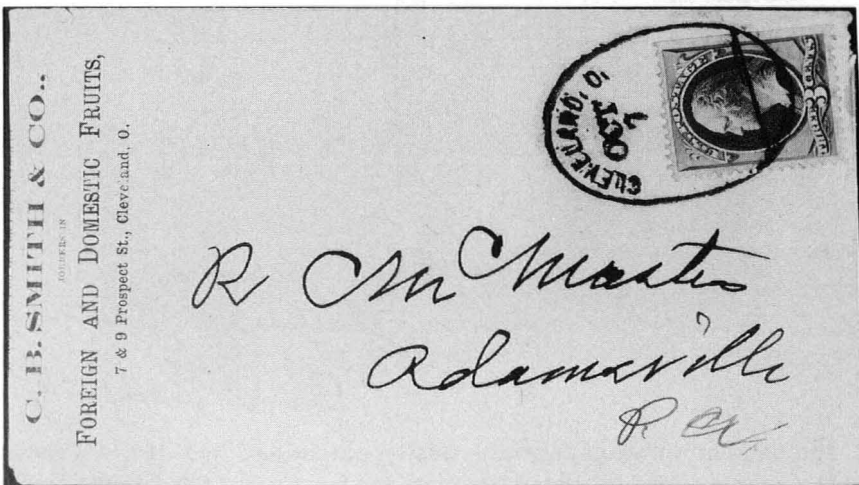 C. B. SMITH & CO.,
JOBBERS IN
FOREIGN AND DOMESTIC FRUITS,
7 & 9 Prospect St., Cleveland, O.
CLEVELAND. O.
OCT
7
U.S. POSTAGE
R McMaster
Adamsville